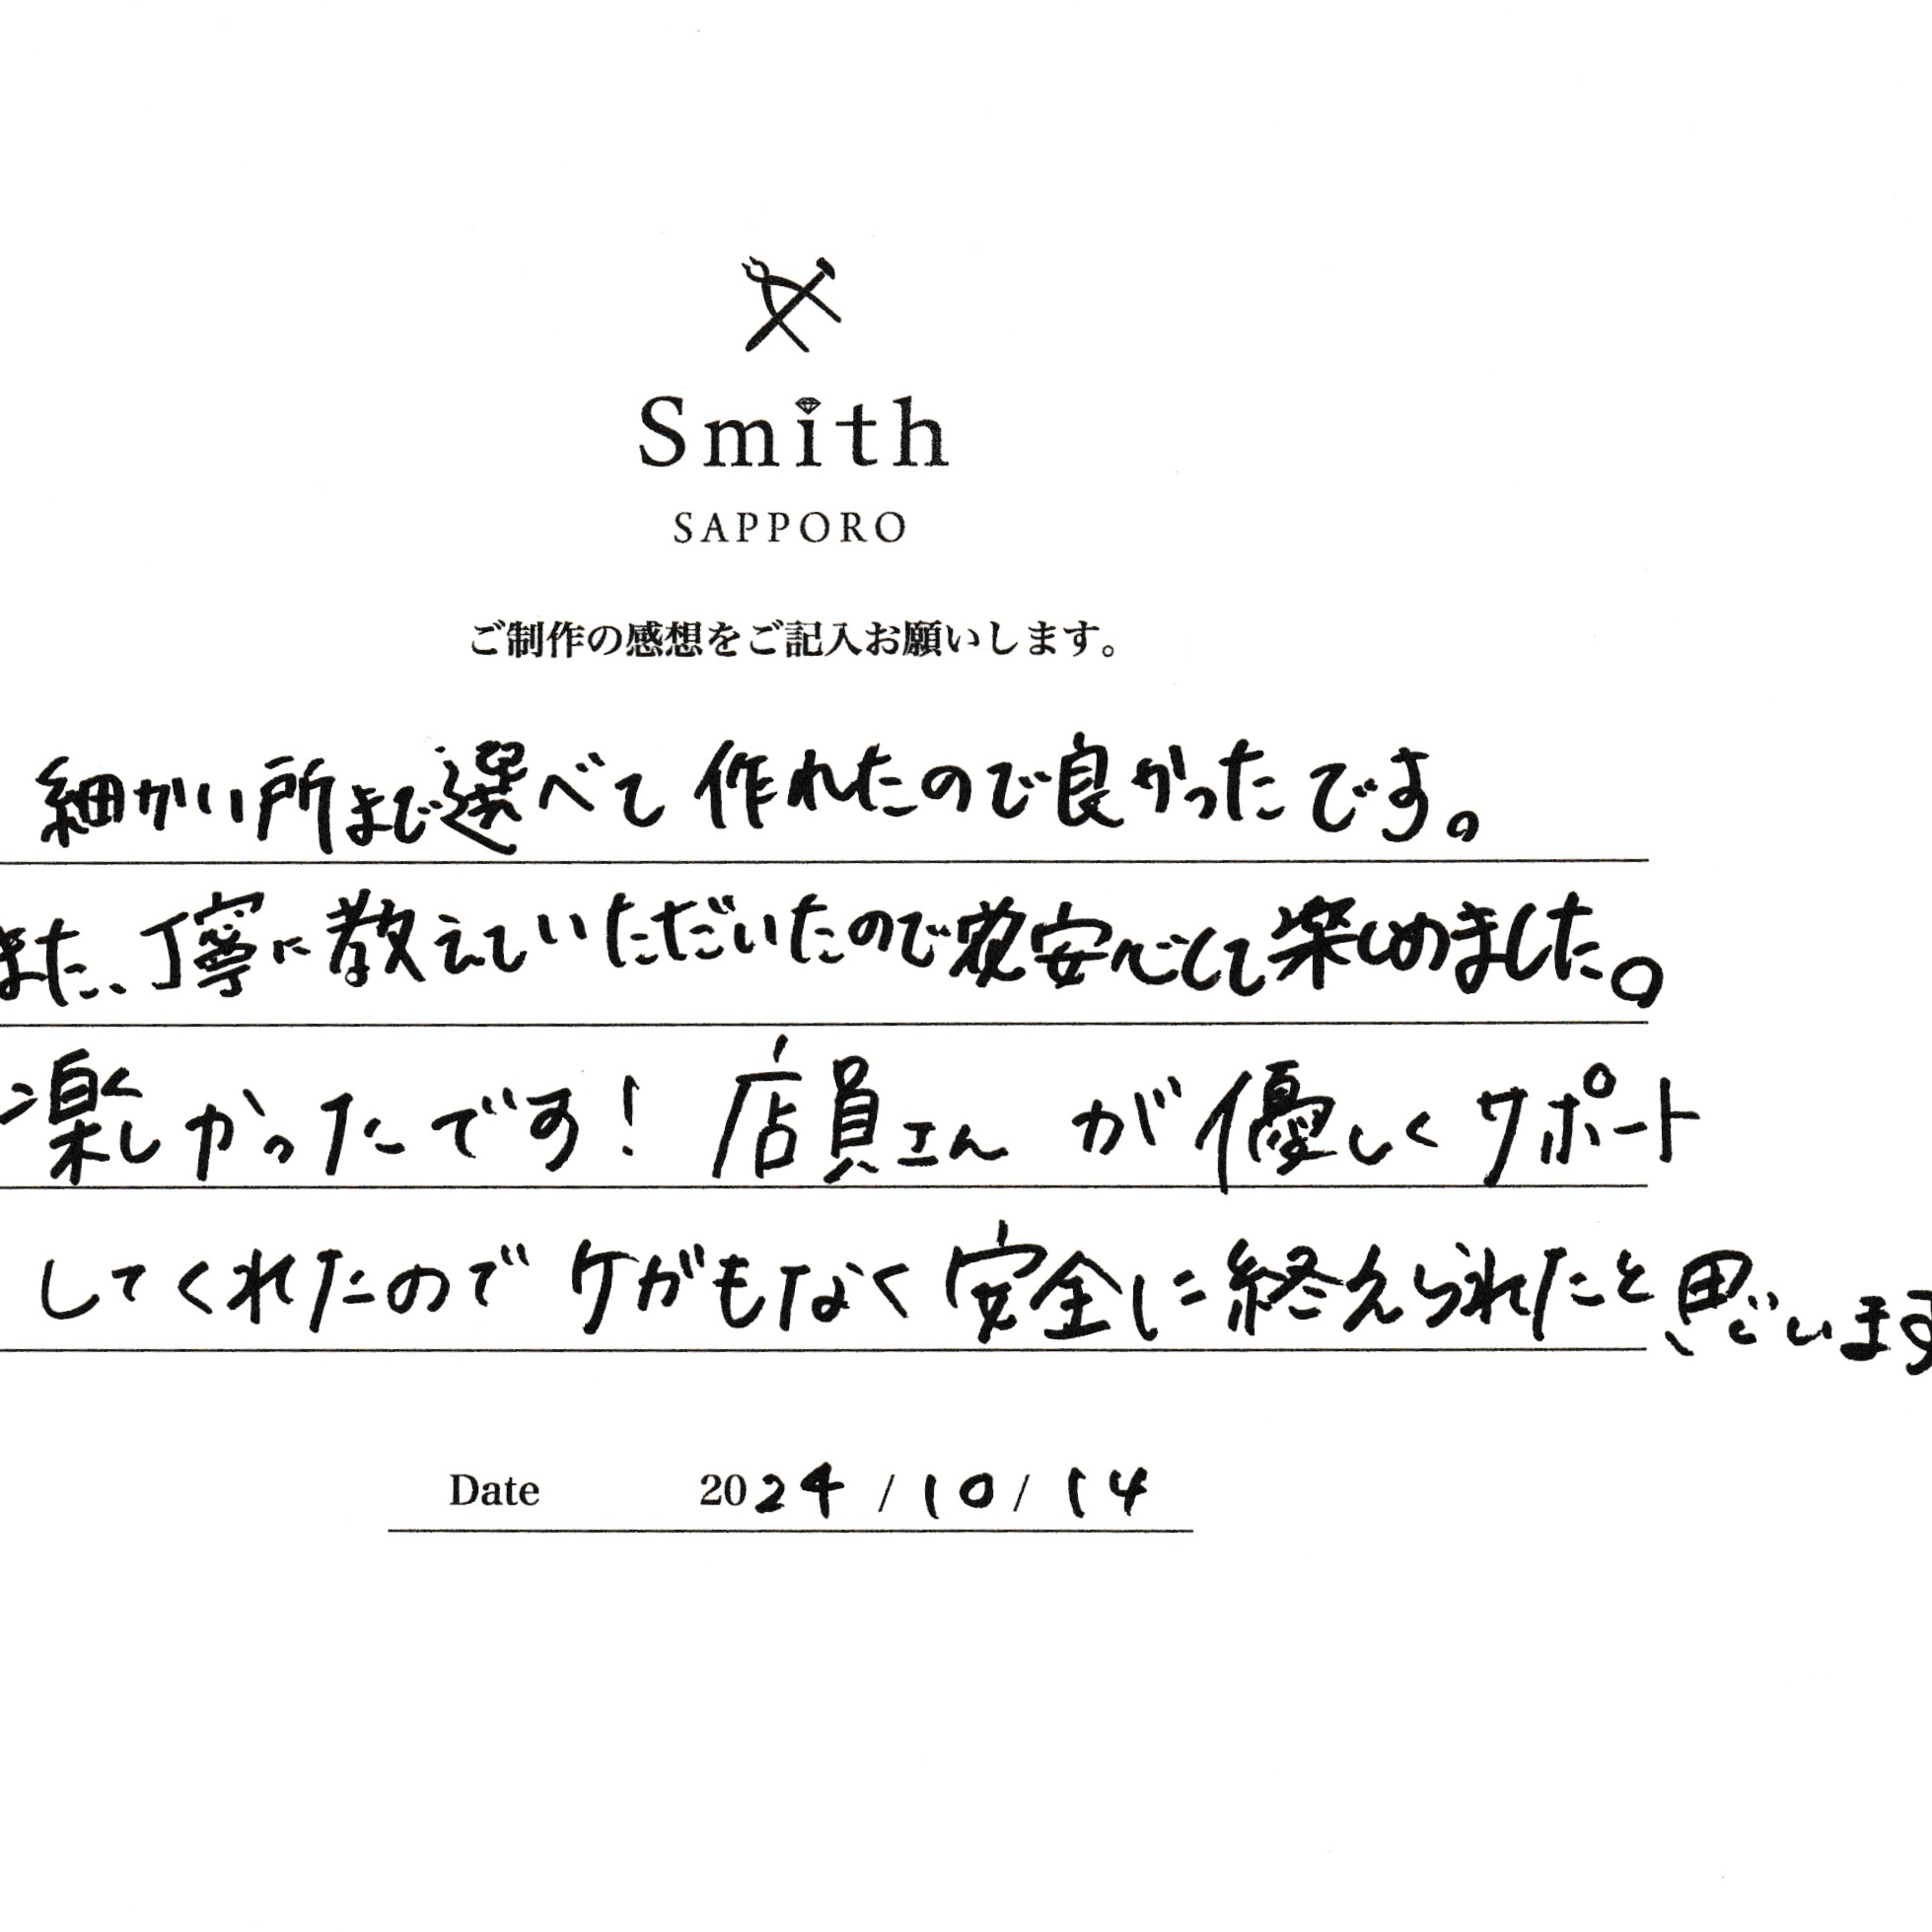 Smith
SAPPORO
ご制作の感想をご記入お願いします。
細かい所まで選べて作れたので良かったです。
また、丁寧に教えていただいたので安心して楽しめました。
楽しかったです！店員さんが優しくサポート
してくれたのでケガもなく安全に終えられたと思います
Date 2024/10/14